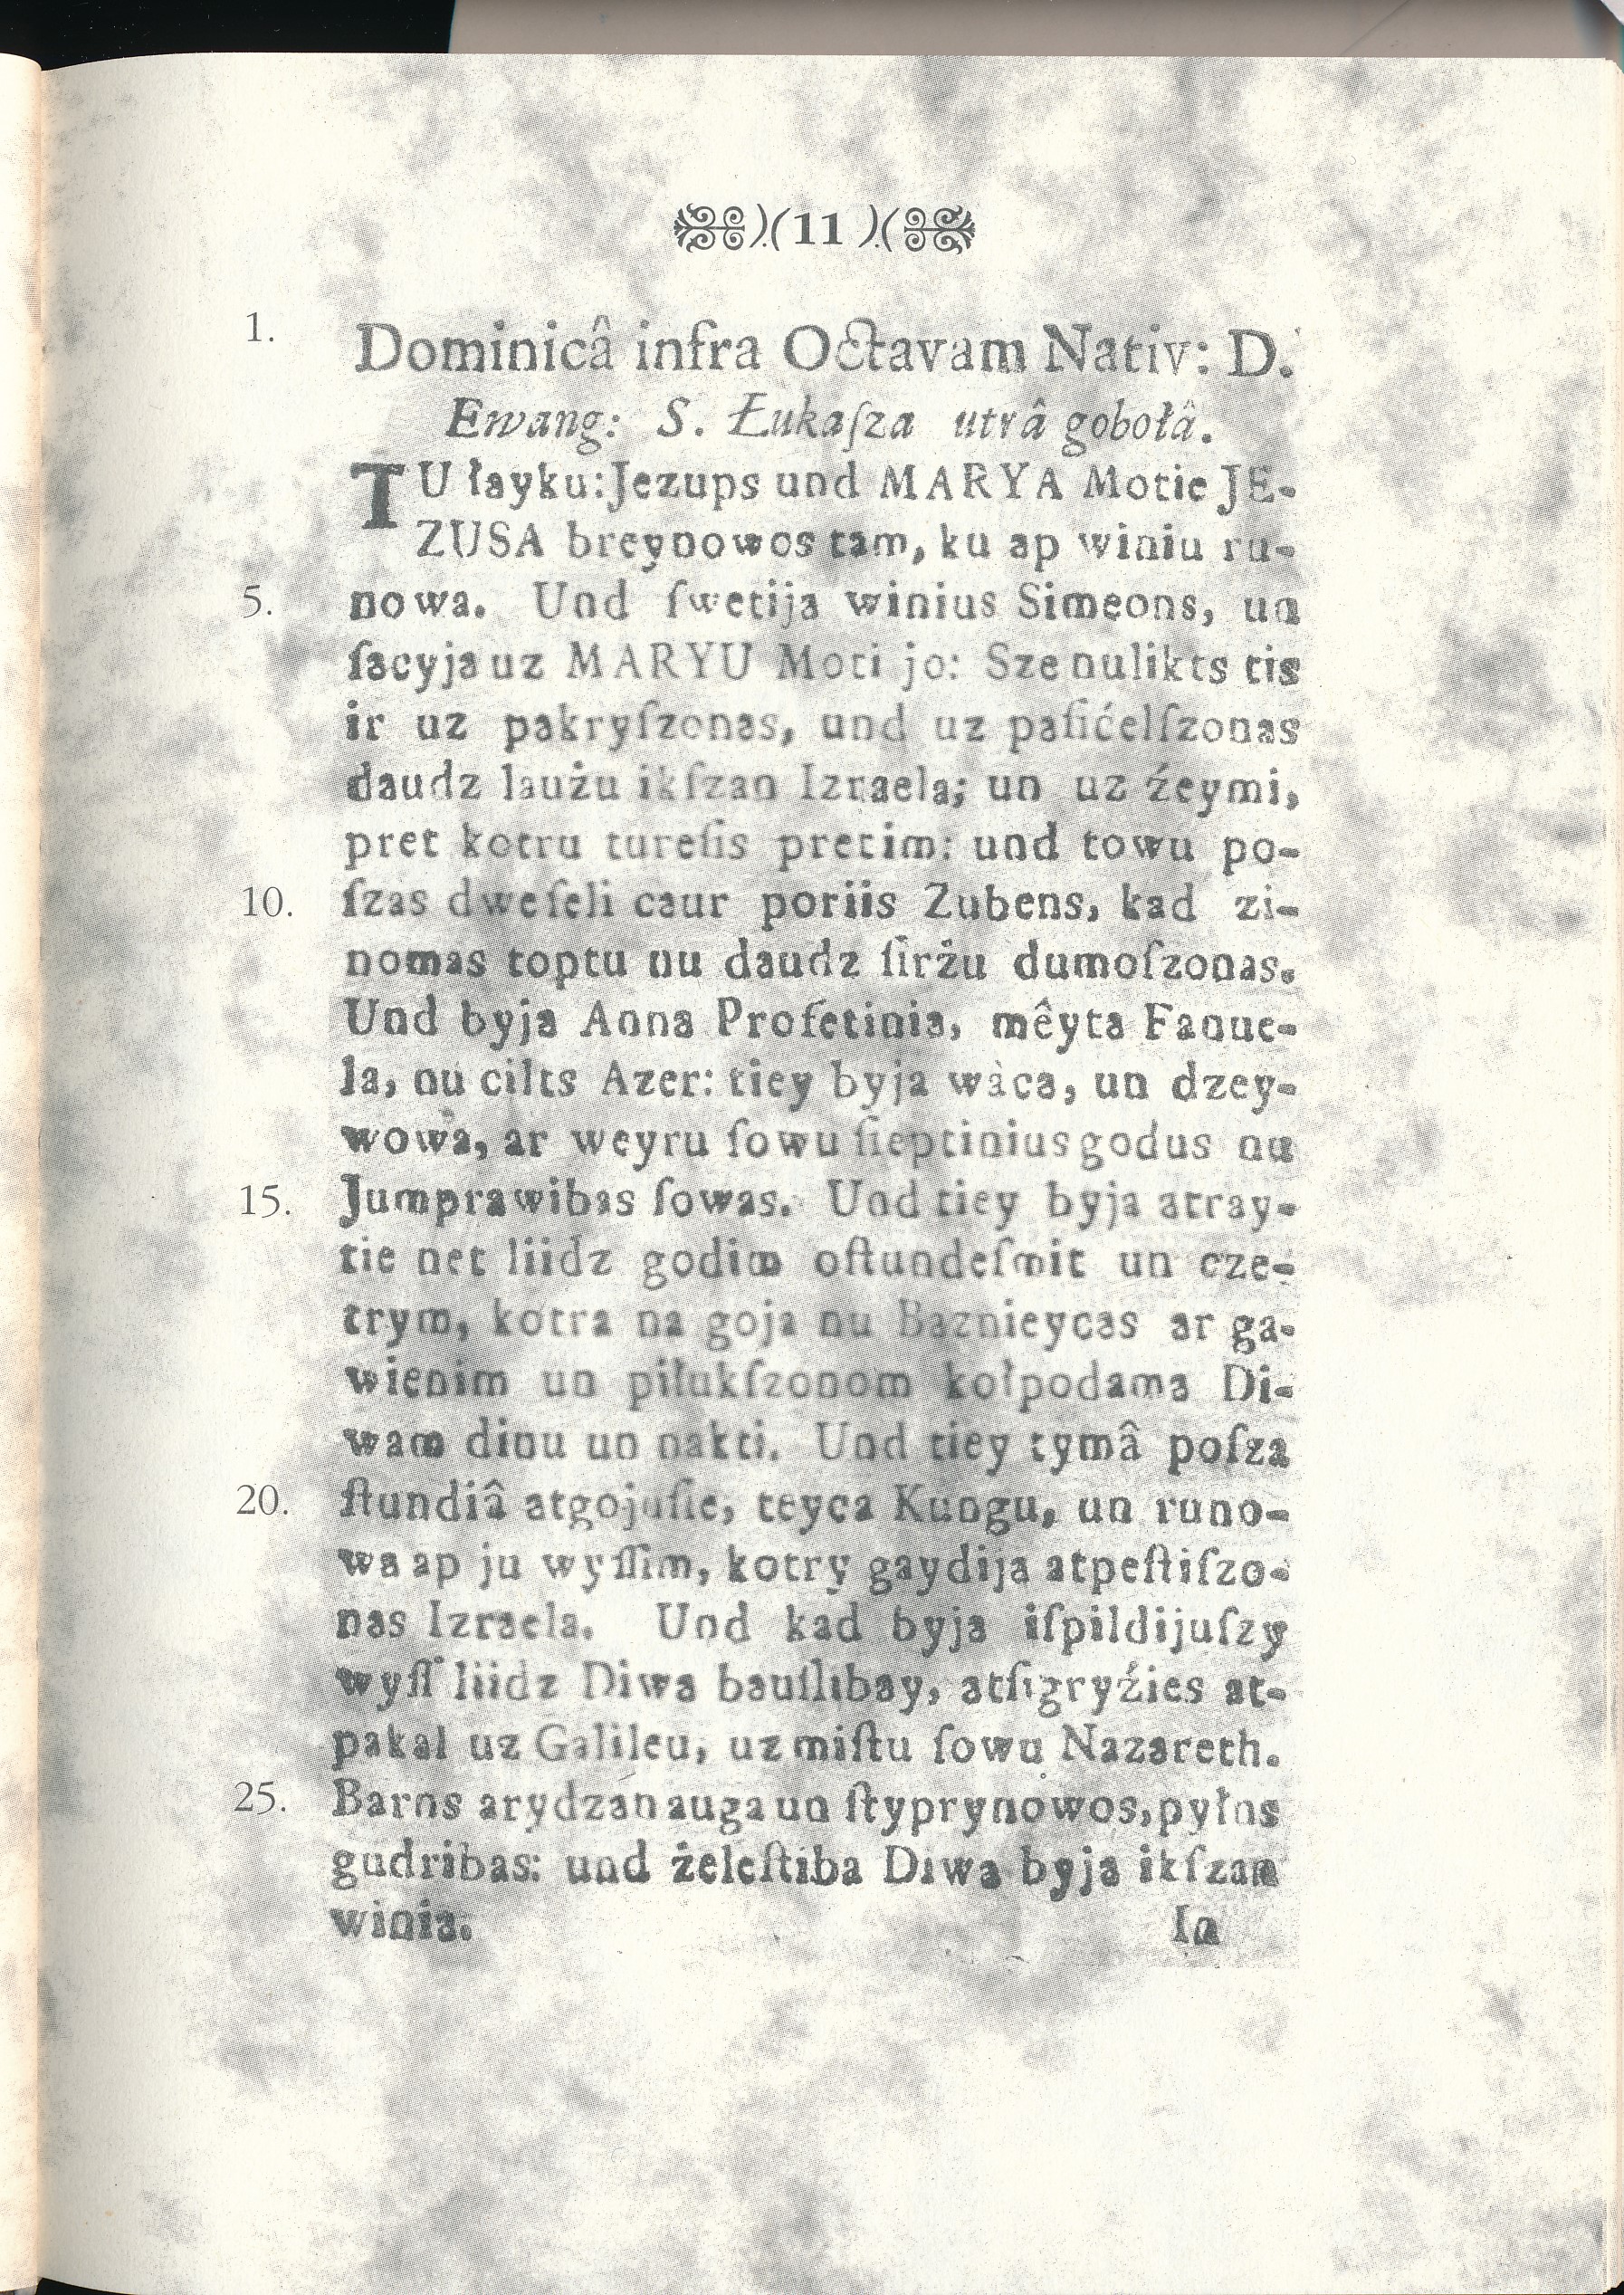 )(11)(
1. Dominicâ infra Octavam Nativ: D.
Ewang: S. Łukaſza utrâ gobołâ.
TU łayku: Jezups und MARYA Motie JE-
ZUSA breynowos tam, ku ap winiu ru-
5. nowa. Und ſwetija winius Simeons, un
ſacyja uz MARYU Moti jo: Sze nulikts tis
ir uz pakryſzonas, und uz paſićelſzonas
daudz laużu ikſzan Izraela; un uz źeymi,
pret kotru tureſis pretim: und towu po-
10. ſzas dweſeli caur poriis Zubens, kad zi-
nomas toptu nu daudz ſirżu dumoſzonas.
Und byja Anna Profetinia, mêyta Fanue-
la, nu cilts Azer: tiey byja wàca, un dzey-
wowa, ar weyru ſowu ſieptinius godus nu
15. Jumprawibas ſowas. Und tiey byja atray-
tie net liidz godim oſtundeſmit un cze-
trym, kotra na goja nu Baznieycas ar ga-
wienim un piłukſzonom kołpodama Di-
wam dinu un nakti. Und tiey tymâ poſza
20. ſtundiâ atgojuſie, teyca Kungu, un runo-
wa ap ju wyſſim, kotry gaydija atpeſtiſzo-
nas Izraela. Und kad byja iſpildijuſzy
wyſſ liidz Diwa bauſlibay, atſigryźies at-
pakal uz Galileu, uz miſtu ſowu Nazareth.
25. Barns arydzan auga un ſtyprynowos, pyłns
gudribas: und żeleſtiba Diwa byja ikſzan
winia. In